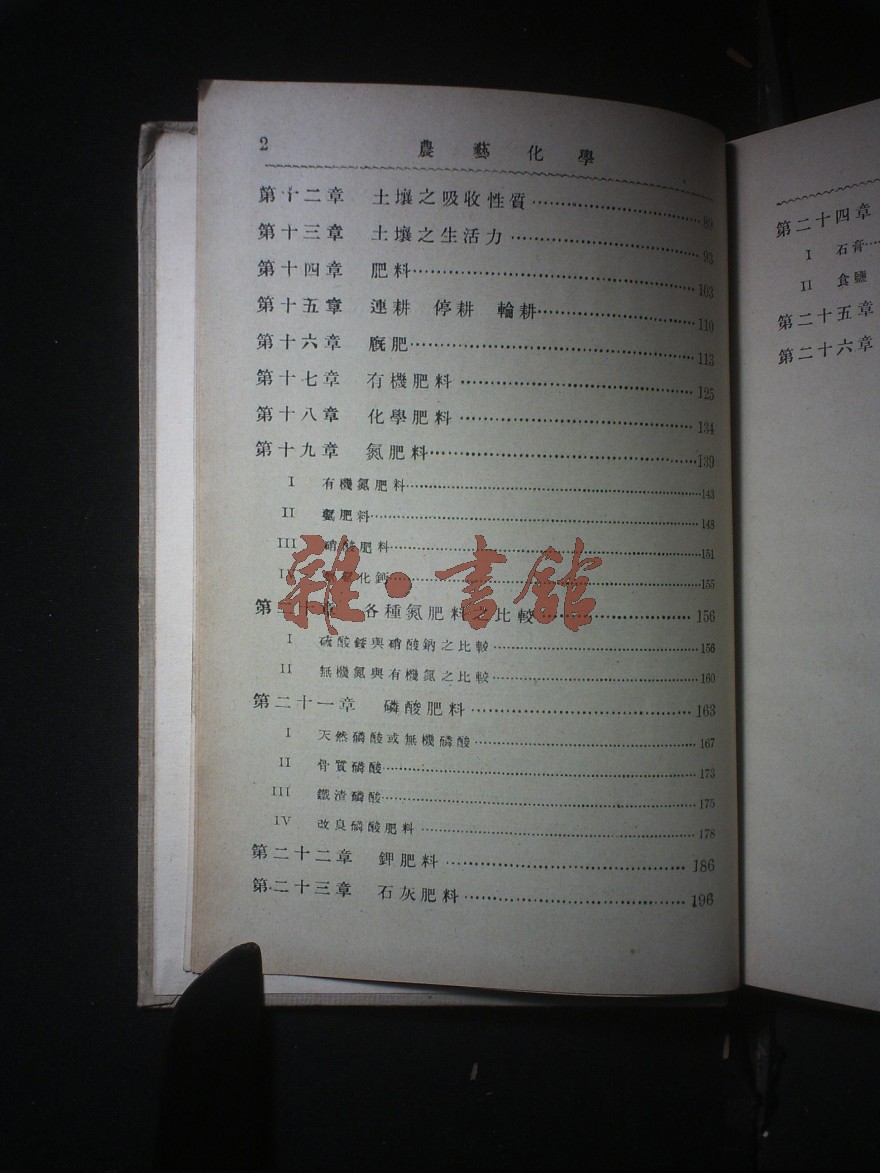 2 農藝化學
第十二章 土壤之吸收性質 89
第十三章 土壤之生活力 93
第十四章 肥料 103
第十五章 連耕 停耕 輪耕 110
第十六章 廐肥 113
第十七章 有機肥料 125
第十八章 化學肥料 134
第十九章 氮肥料 139
I 有機氮肥料 143
II 肥料 148
III 硝酸肥料 151
化鈣 155
第二十章 各種氮肥料之比較 156
I 硫酸銨與硝酸鈉之比較 156
II 無機氮與有機氮之比較 160
第二十一章 磷酸肥料 163
I 天然磷酸或無機磷酸 167
II 骨質磷酸 173
III 鐵渣磷酸 175
IV 改良磷酸肥料 178
第二十二章 鉀肥料 186
第二十三章 石灰肥料 196
雜·書館
第二十四章
I 石膏
II 食鹽
第二十五章
第二十六章